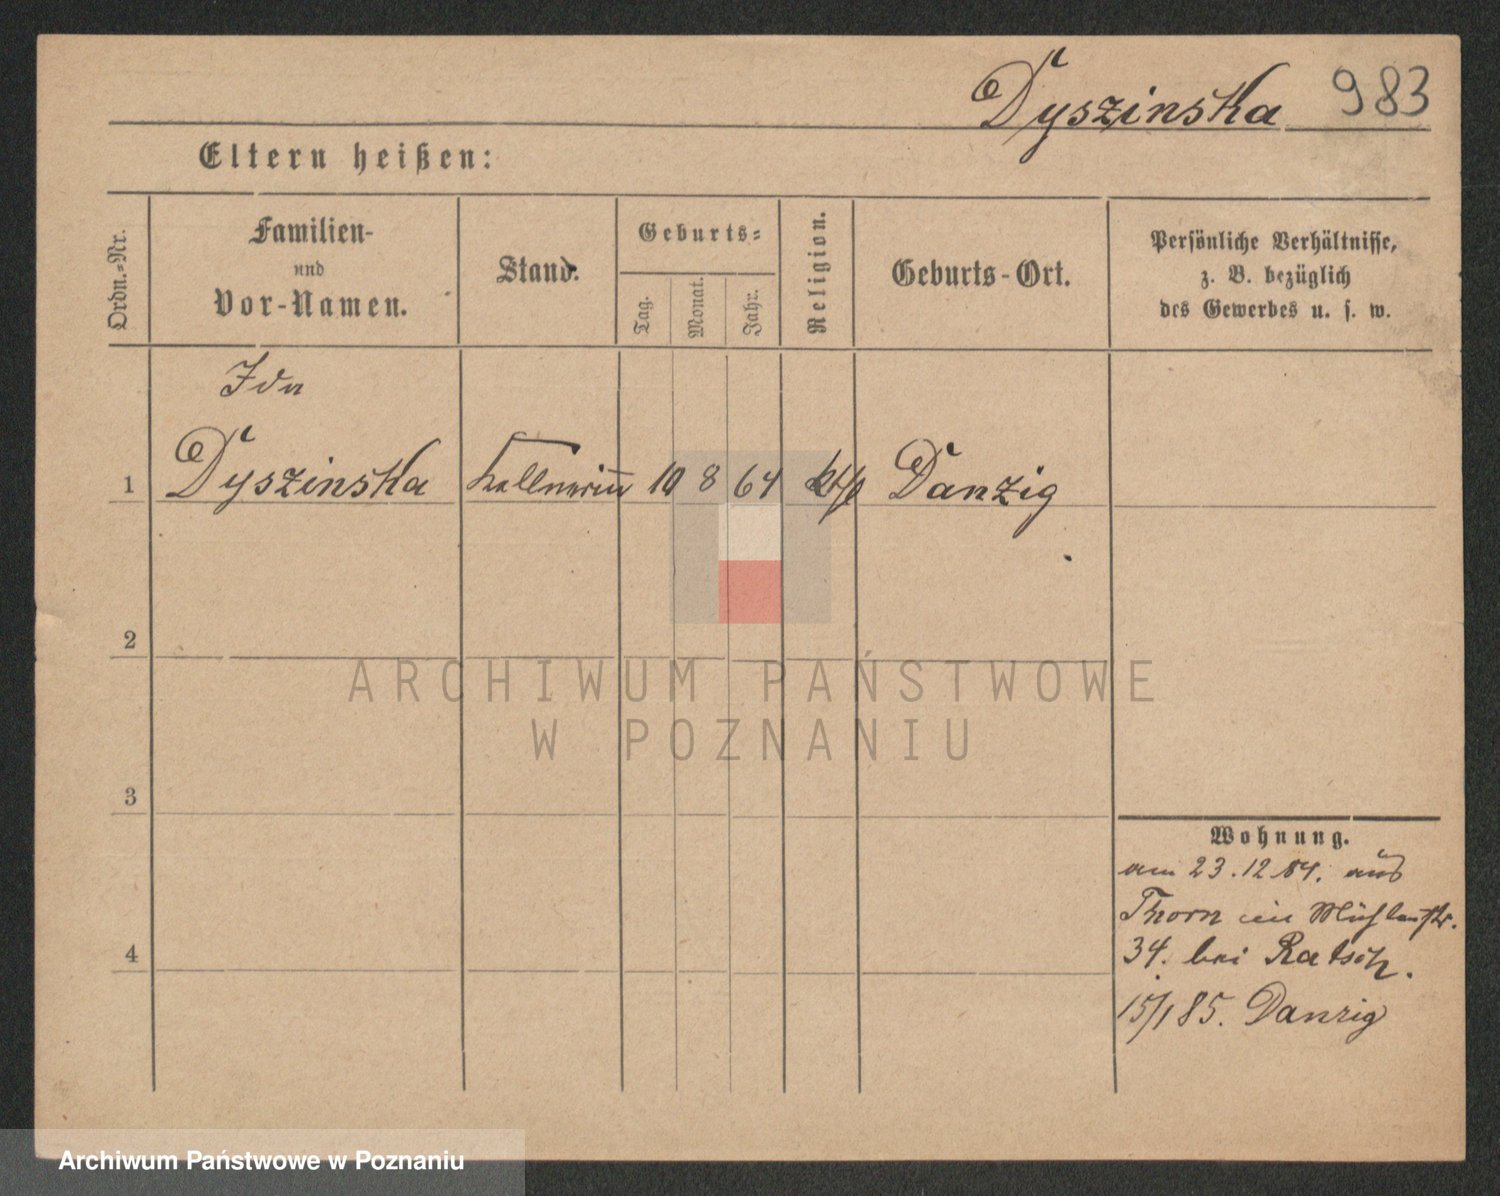 Dyszinska 983
Eltern heißen:
Ordn.=Nr.
Familien-
und
Vor-Namen.
Stand.
Geburts=
Tag.
Monat.
Jahr.
Religion.
Geburts-Ort.
Persönliche Verhältnisse,
z. B. bezüglich
des Gewerbes u. s. w.
Ida
1 Dyszinska Kellnerin 10 8 64 kth Danzig
2
3
4
Wohnung.
am 23.12.84. aus
Thorn in Mühlenstr.
34. bei Ratsch.
15/1 85. Danzig
ARCHIWUM PAŃSTWOWE
W POZNANIU
Archiwum Państwowe w Poznaniu